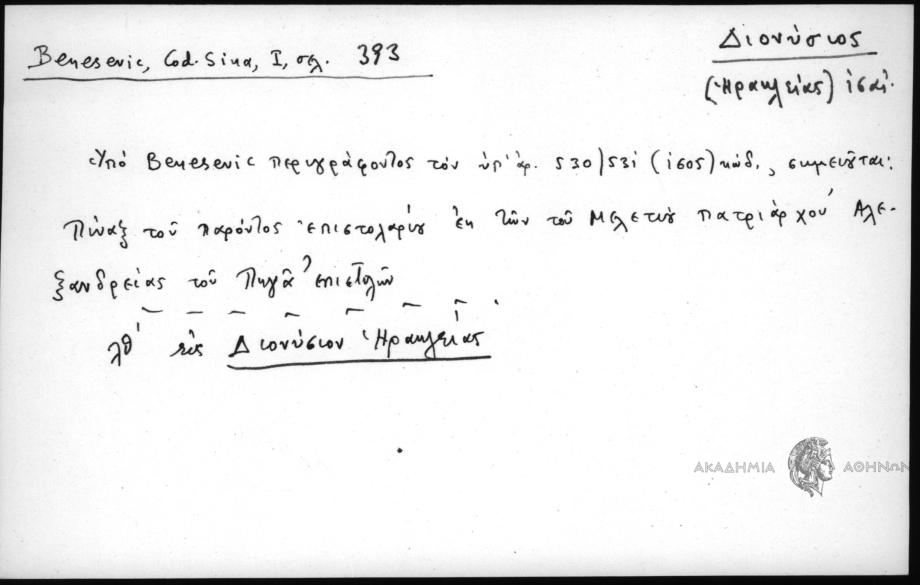 Διονύσιος
Benesevic, Cod. Sina, I, σελ. 393
(Ἡρακλείας)
Ὑπό Benesevic περιγράφοντος τόν ὑπ' ἀρ. 530/531 (1605) κώδ., σημειοῦται:
Πίναξ τοῦ παρόντος ἐπιστολαρίου ἐκ τῶν τοῦ Μελετίου πατριάρχου Αλε-
ξανδρείας τοῦ Πηγᾶ ἐπιστολῶν
λθ' εἰς Διονύσιον Ἡρακλείας
ΑΚΑΔΗΜΙΑ ΑΘΗΝΩΝ